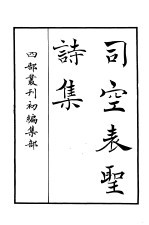 司空表聖
詩集
四部叢刊初編集部